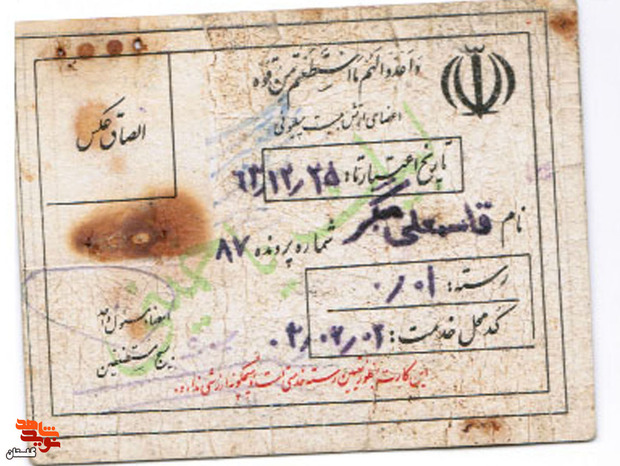 واعدوا لهم ما استطعتم من قوه
اعضای ارتش بیست میلیونی
الصاق عکس
تاریخ اعتبار تا: ۶۳/۱۲/۲۵
نام قاسمعلی
شماره پرونده ۸۷
رسته: ۰/۰۱
کد محل خدمت: ۰۳/۰۲/۰۲
امضاء مسئول واحد
بسیج مستضعفین
این کارت بمنظور تعیین رسته خدمتی است و هیچگونه ارزشی ندارد.
نوید شاهد
گلستان